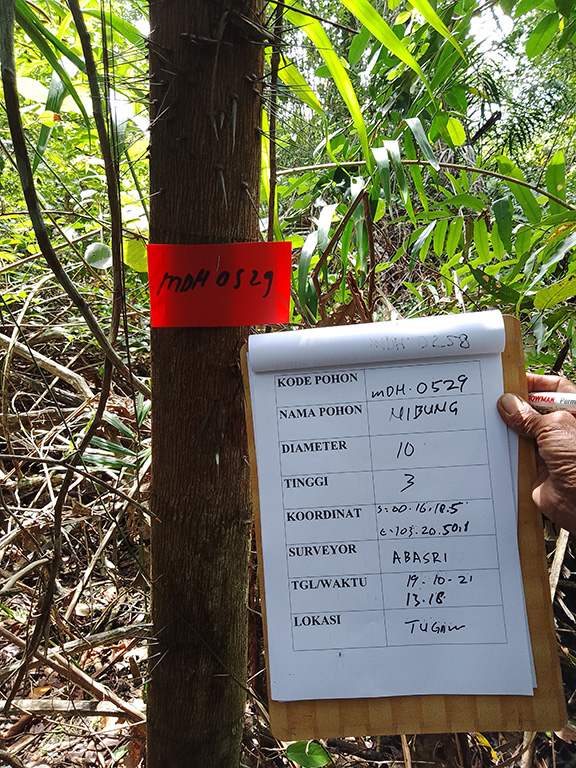 MDH 0529
MDH 0258
KODE POHON MDH.0529
NAMA POHON NIBUNG
DIAMETER 10
TINGGI 3
KOORDINAT S:00.16.18.5
E:103.20.50.1
SURVEYOR ABASRI
TGL/WAKTU 19-10-21
13.18
LOKASI
OWMAN Perm